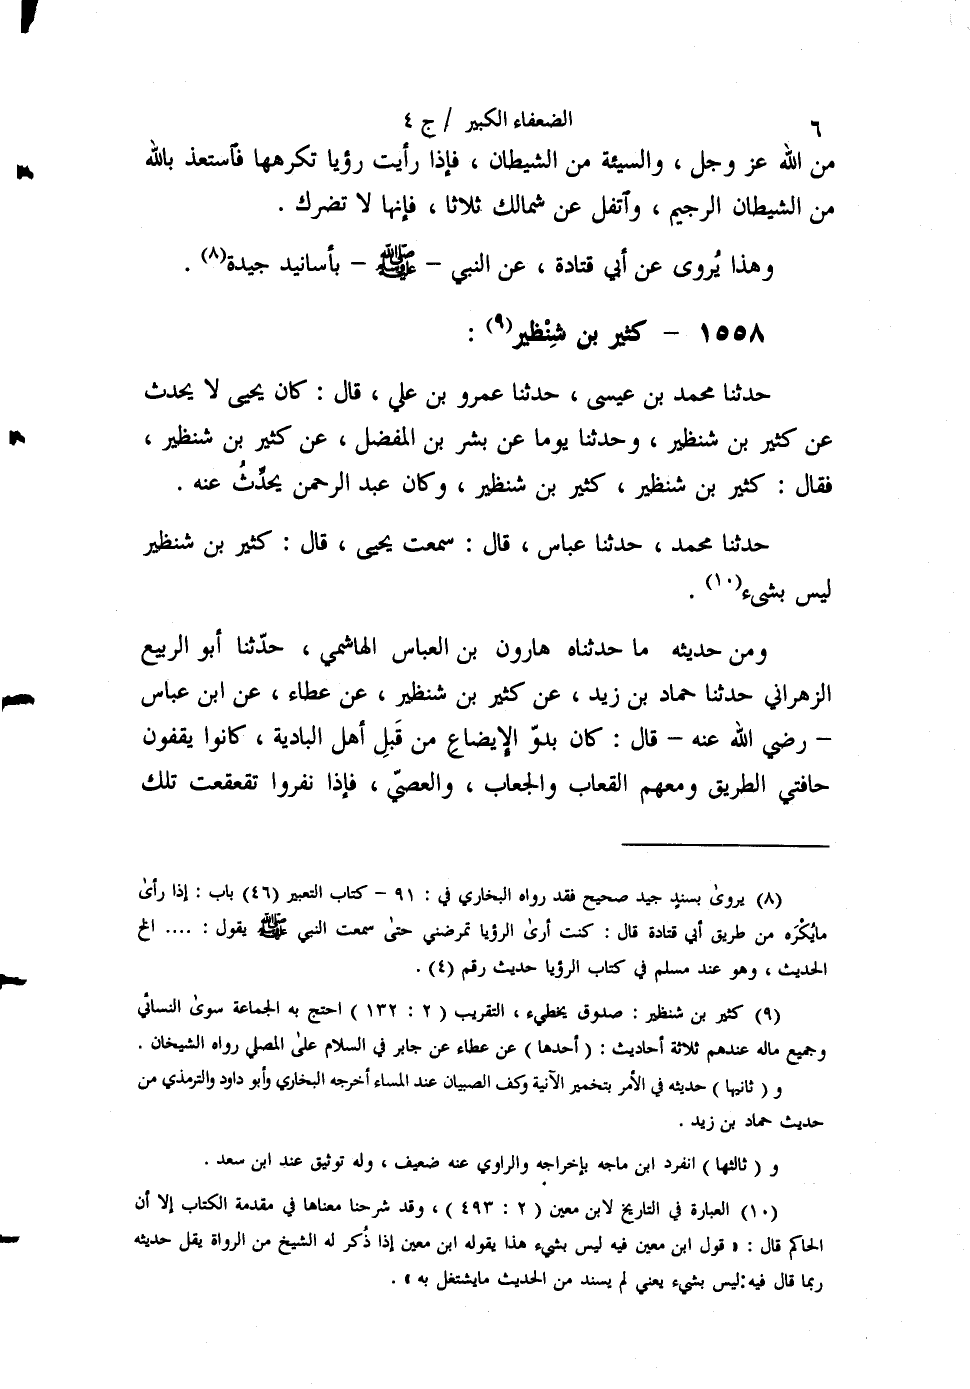 ٦
الضعفاء الكبير / ج ٤
من الله عز وجل ، والسيئة من الشيطان ، فإذا رأيت رؤيا تكرهها فآستعذ بالله
من الشيطان الرجيم ، وآتفل عن شمالك ثلاثا ، فإنها لا تضرك .
وهذا يُروى عن أبي قتادة ، عن النبي – ﷺ – بأسانيد جيدة(٨) .
١٥٥٨ – كثير بن شِنْظير(٩) :
حدثنا محمد بن عيسى ، حدثنا عمرو بن علي ، قال : كان يحيى لا يحدث
عن كثير بن شنظير ، وحدثنا يوما عن بشر بن المفضل ، عن كثير بن شنظير ،
فقال : كثير بن شنظير ، كثير بن شنظير ، وكان عبد الرحمن يحدِّثُ عنه .
حدثنا محمد ، حدثنا عباس ، قال : سمعت يحيى ، قال : كثير بن شنظير
ليس بشىء(١٠) .
ومن حديثه ما حدثناه هارون بن العباس الهاشمي ، حدّثنا أبو الربيع
الزهراني حدثنا حماد بن زيد ، عن كثير بن شنظير ، عن عطاء ، عن ابن عباس
– رضي الله عنه – قال : كان بدوّ الإيضاعِ من قَبلِ أهل البادية ، كانوا يقفون
حافتي الطريق ومعهم القعاب والجعاب ، والعصيّ ، فإذا نفروا تقعقعت تلك
(٨) يروىٰ بسندٍ جيد صحيح فقد رواه البخاري في : ٩١ – كتاب التعبير (٤٦) باب : إذا رأىٰ
مايُكْرَه من طريق أبي قتادة قال : كنت أرىٰ الرؤيا تمرضني حتىٰ سمعت النبي ﷺ يقول : .... الخ
الحديث ، وهو عند مسلم في كتاب الرؤيا حديث رقم (٤) .
(٩) كثير بن شنظير : صدوق يخطيء ، التقريب ( ٢ : ١٣٢ ) احتج به الجماعة سوىٰ النسائي
وجميع ماله عندهم ثلاثة أحاديث : ( أحدها ) عن عطاء عن جابر في السلام علىٰ المصلي رواه الشيخان .
و ( ثانيها ) حديثه في الأمر بتخمير الآنية وكف الصبيان عند المساء أخرجه البخاري وأبو داود والترمذي من
حديث حماد بن زيد .
و ( ثالثها ) انفرد ابن ماجه بإخراجه والراوي عنه ضعيف ، وله توثيق عند ابن سعد .
(١٠) العبارة في التاريخ لابن معين ( ٢ : ٤٩٣ ) ، وقد شرحنا معناها في مقدمة الكتاب إلا أن
الحاكم قال : « قول ابن معين فيه ليس بشيء هذا يقوله ابن معين إذا ذُكر له الشيخ من الرواة يقل حديثه
ربما قال فيه:ليس بشيء يعني لم يسند من الحديث مايشتغل به » .